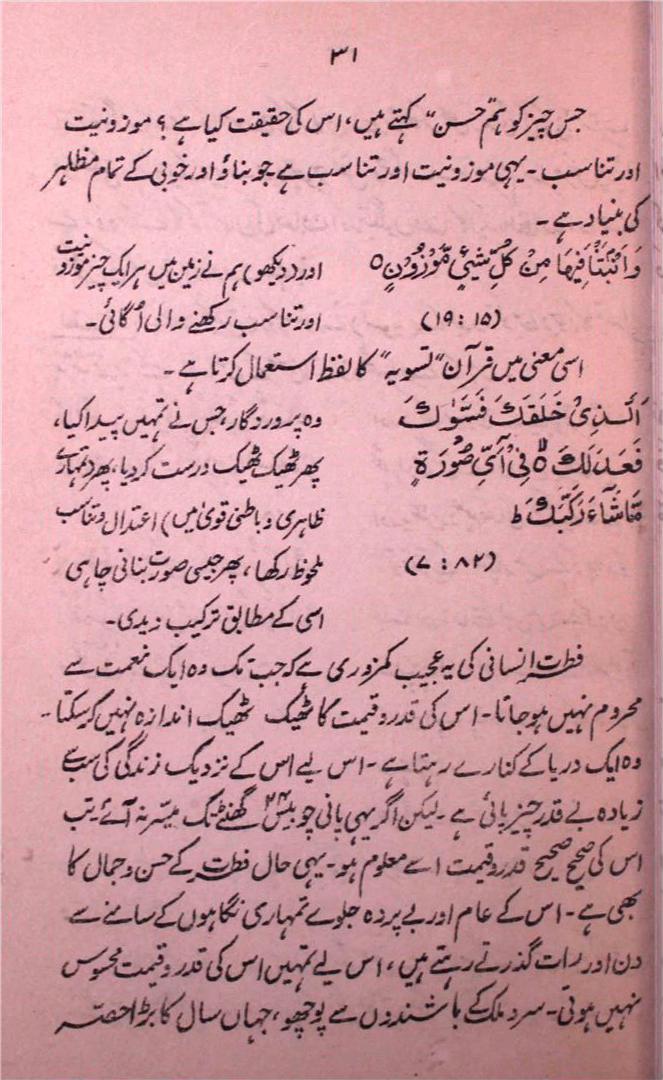 ۳۱
جس چیز کو ہم "حسن" کہتے ہیں، اس کی حقیقت کیا ہے؟ موزونیت
اور تناسب۔ یہی موزونیت اور تناسب ہے جو بناؤ اور خوبی کے تمام مظاہر
کی بنیاد ہے۔
وَاَنْبَتْنَا فِيْهَا مِنْ كُلِّ شَيْئٍ مَّوْزُوْنٍ ٥
(۱۵ : ۱۹)
اور (دیکھو) ہم نے زمین میں ہر ایک چیز موزونیت
اور تناسب رکھنے والی اُگائی۔
اسی معنی میں قرآن "تسویہ" کا لفظ استعمال کرتا ہے۔
اَلَّذِىْ خَلَقَكَ فَسَوّٰىكَ
فَعَدَلَكَ ٥ فِىْٓ اَىِّ صُوْرَةٍ
مَّاشَآءَ رَكَّبَكَ ط
(۸۲ : ۷)
وہ پروردگار، جس نے تمہیں پیدا کیا،
پھر ٹھیک ٹھیک درست کر دیا، پھر (تمہارے
ظاہری و باطنی قویٰ میں) اعتدال و تناسب
ملحوظ رکھا، پھر جیسی صورت بنانی چاہی
اسی کے مطابق ترکیب دیدی۔
فطرت انسانی کی یہ عجیب کمزوری ہے کہ جب تک وہ ایک نعمت سے
محروم نہیں ہو جاتا۔ اس کی قدر و قیمت کا ٹھیک ٹھیک اندازہ نہیں کر سکتا۔
وہ ایک دریا کے کنارے رہتا ہے۔ اس لیے اس کے نزدیک زندگی کی سب سے
زیادہ بے قدر چیز پانی ہے۔ لیکن اگر یہی پانی چوبیس ۲۴ گھنٹے تک میسر نہ آئے تب
اس کی صحیح صحیح قدر و قیمت اسے معلوم ہو۔ یہی حال فطرت کے حسن و جمال کا
بھی ہے۔ اس کے عام اور بے پردہ جلوے تمہاری نگاہوں کے سامنے سے
دن اور رات گذرتے رہتے ہیں، اس لیے تمہیں اس کی قدر و قیمت محسوس
نہیں ہوتی۔ سرد ملک کے باشندوں سے پوچھو، جہاں سال کا بڑا حصّہ